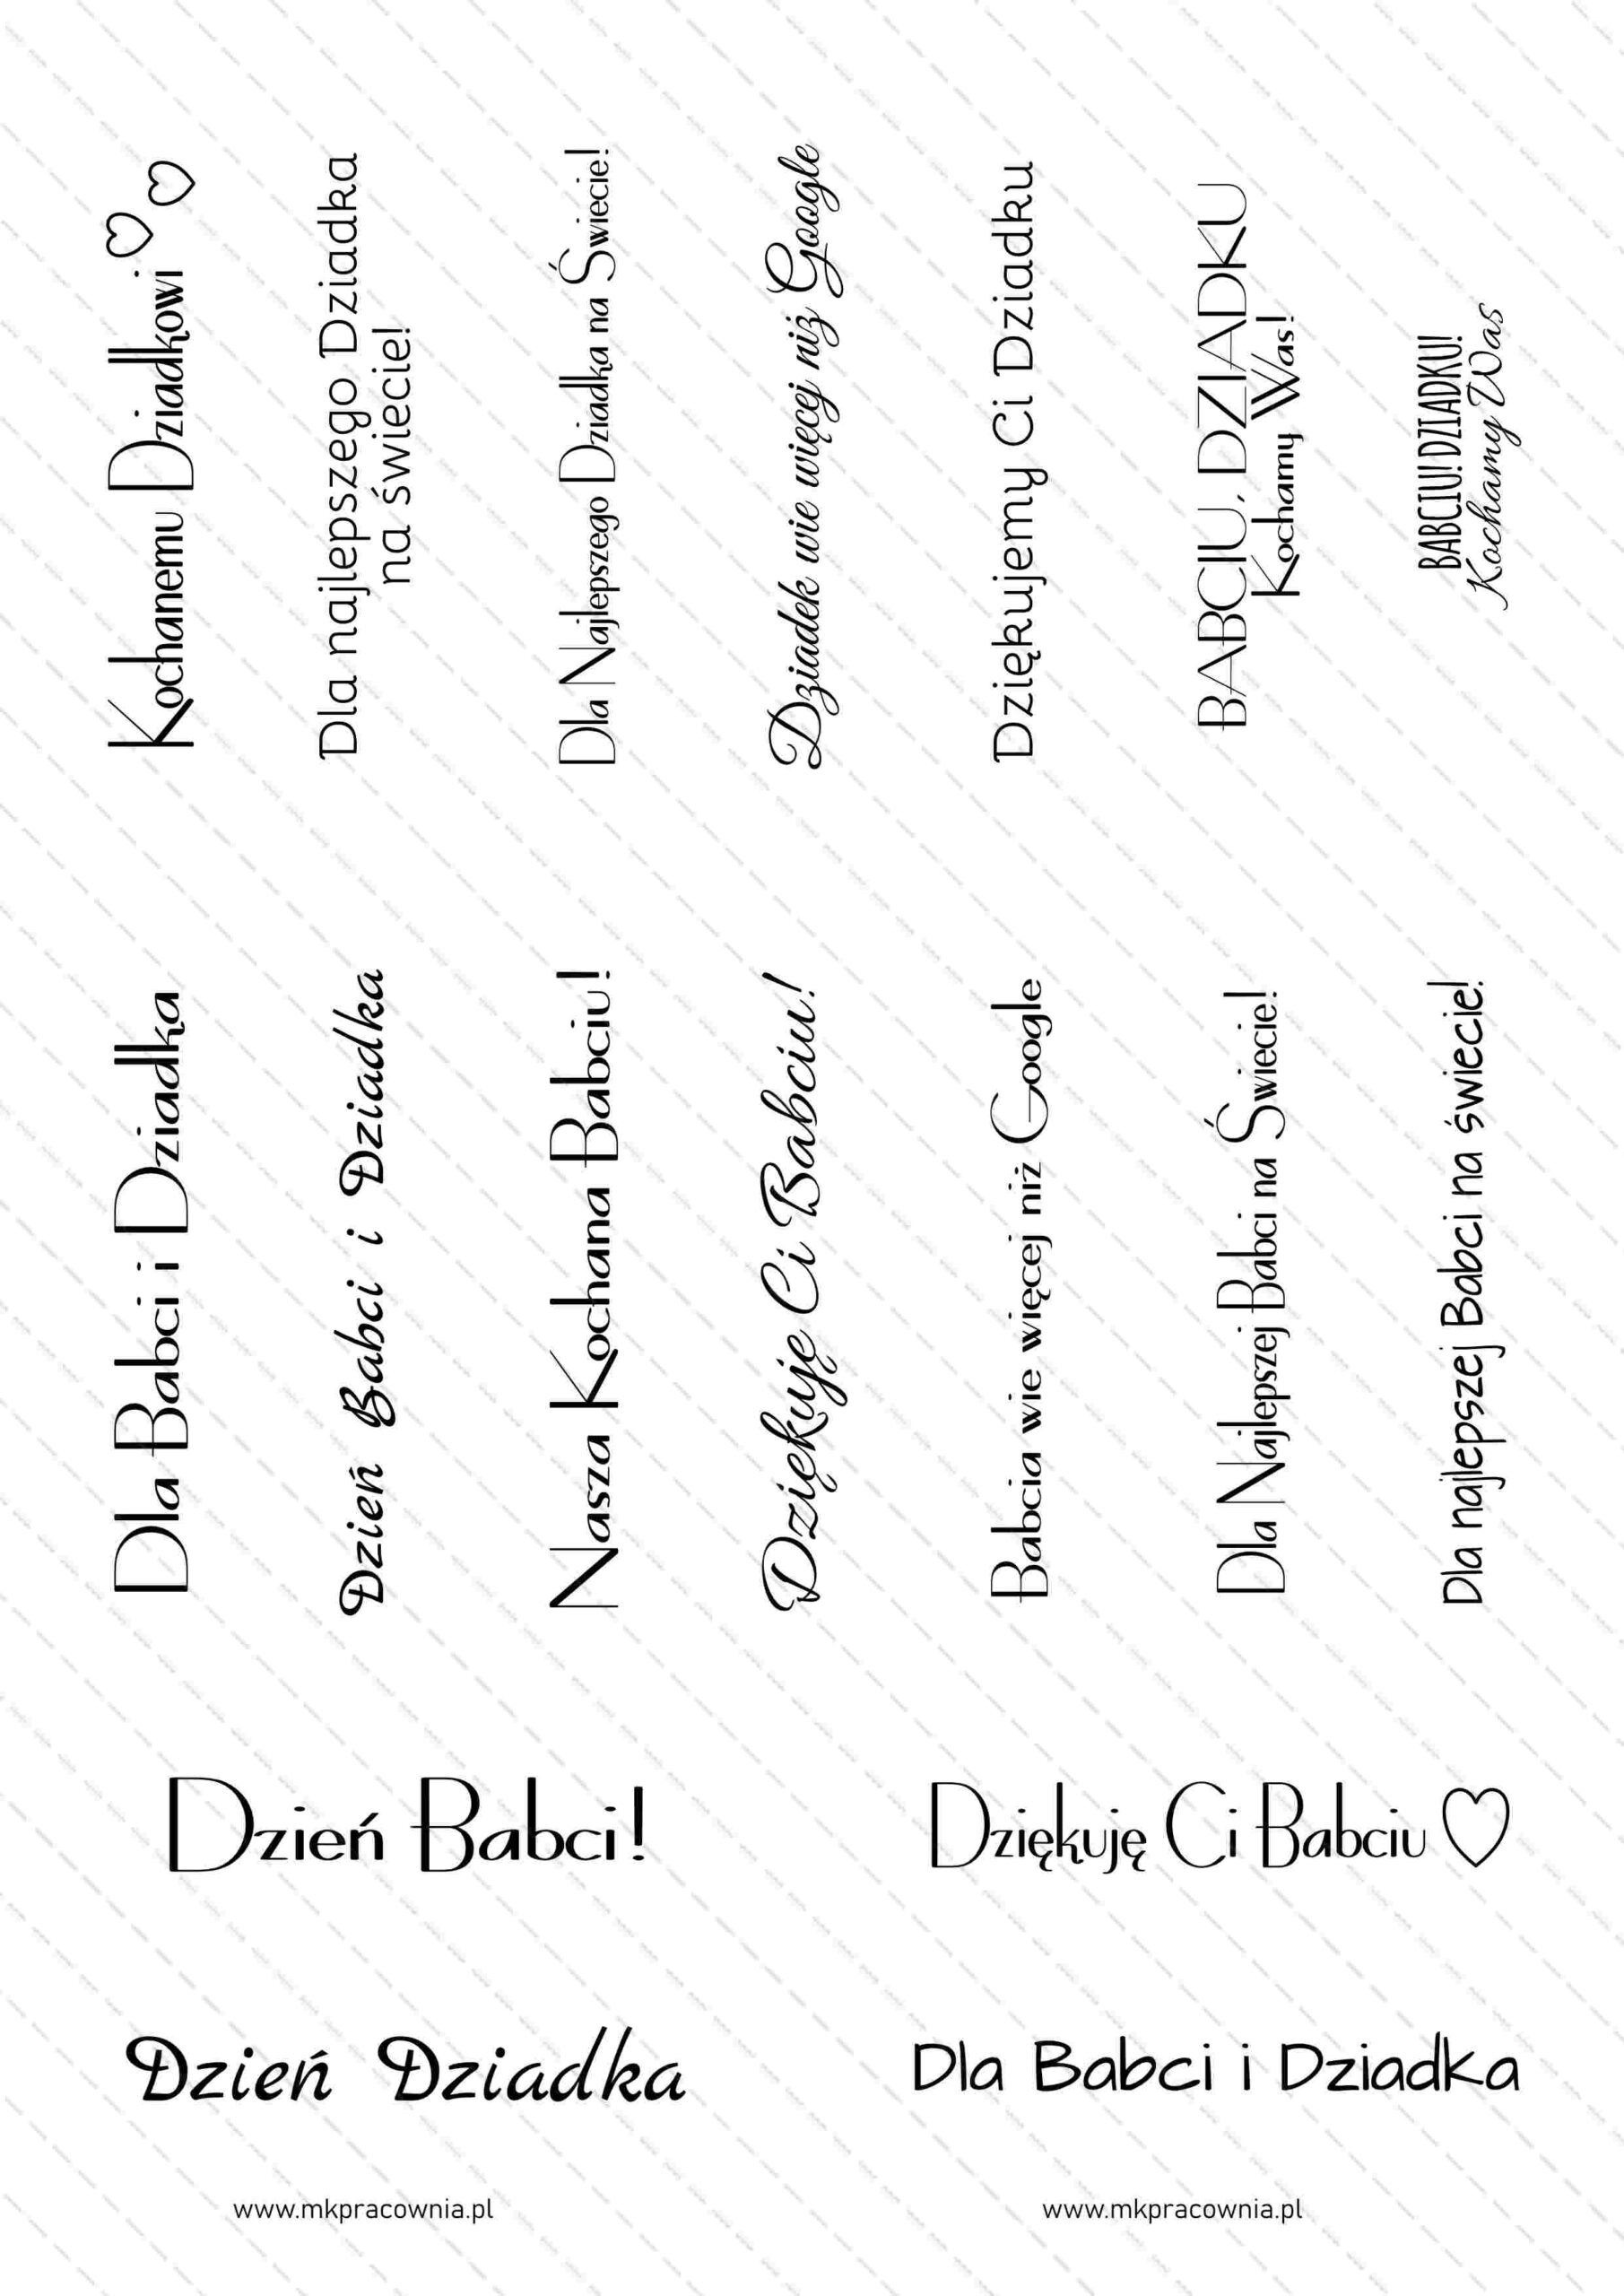 Kochanemu Dziadkowi
Dla najlepszego Dziadka
na świecie!
Dla Najlepszego Dziadka na Świecie!
Dziadek wie więcej niż Google
Dziękujemy Ci Dziadku
BABCIU, DZIADKU
Kochamy Was!
BABCIU! DZIADKU!
Kochamy Was
Dla Babci i Dziadka
Dzień Babci i Dziadka
Nasza Kochana Babciu!
Dziękuję Ci Babciu!
Babcia wie więcej niż Google
Dla Najlepszej Babci na Świecie!
Dla najlepszej Babci na świecie!
Dzień Babci!
Dziękuję Ci Babciu
Dzień Dziadka
Dla Babci i Dziadka
www.mkpracownia.pl
www.mkpracownia.pl